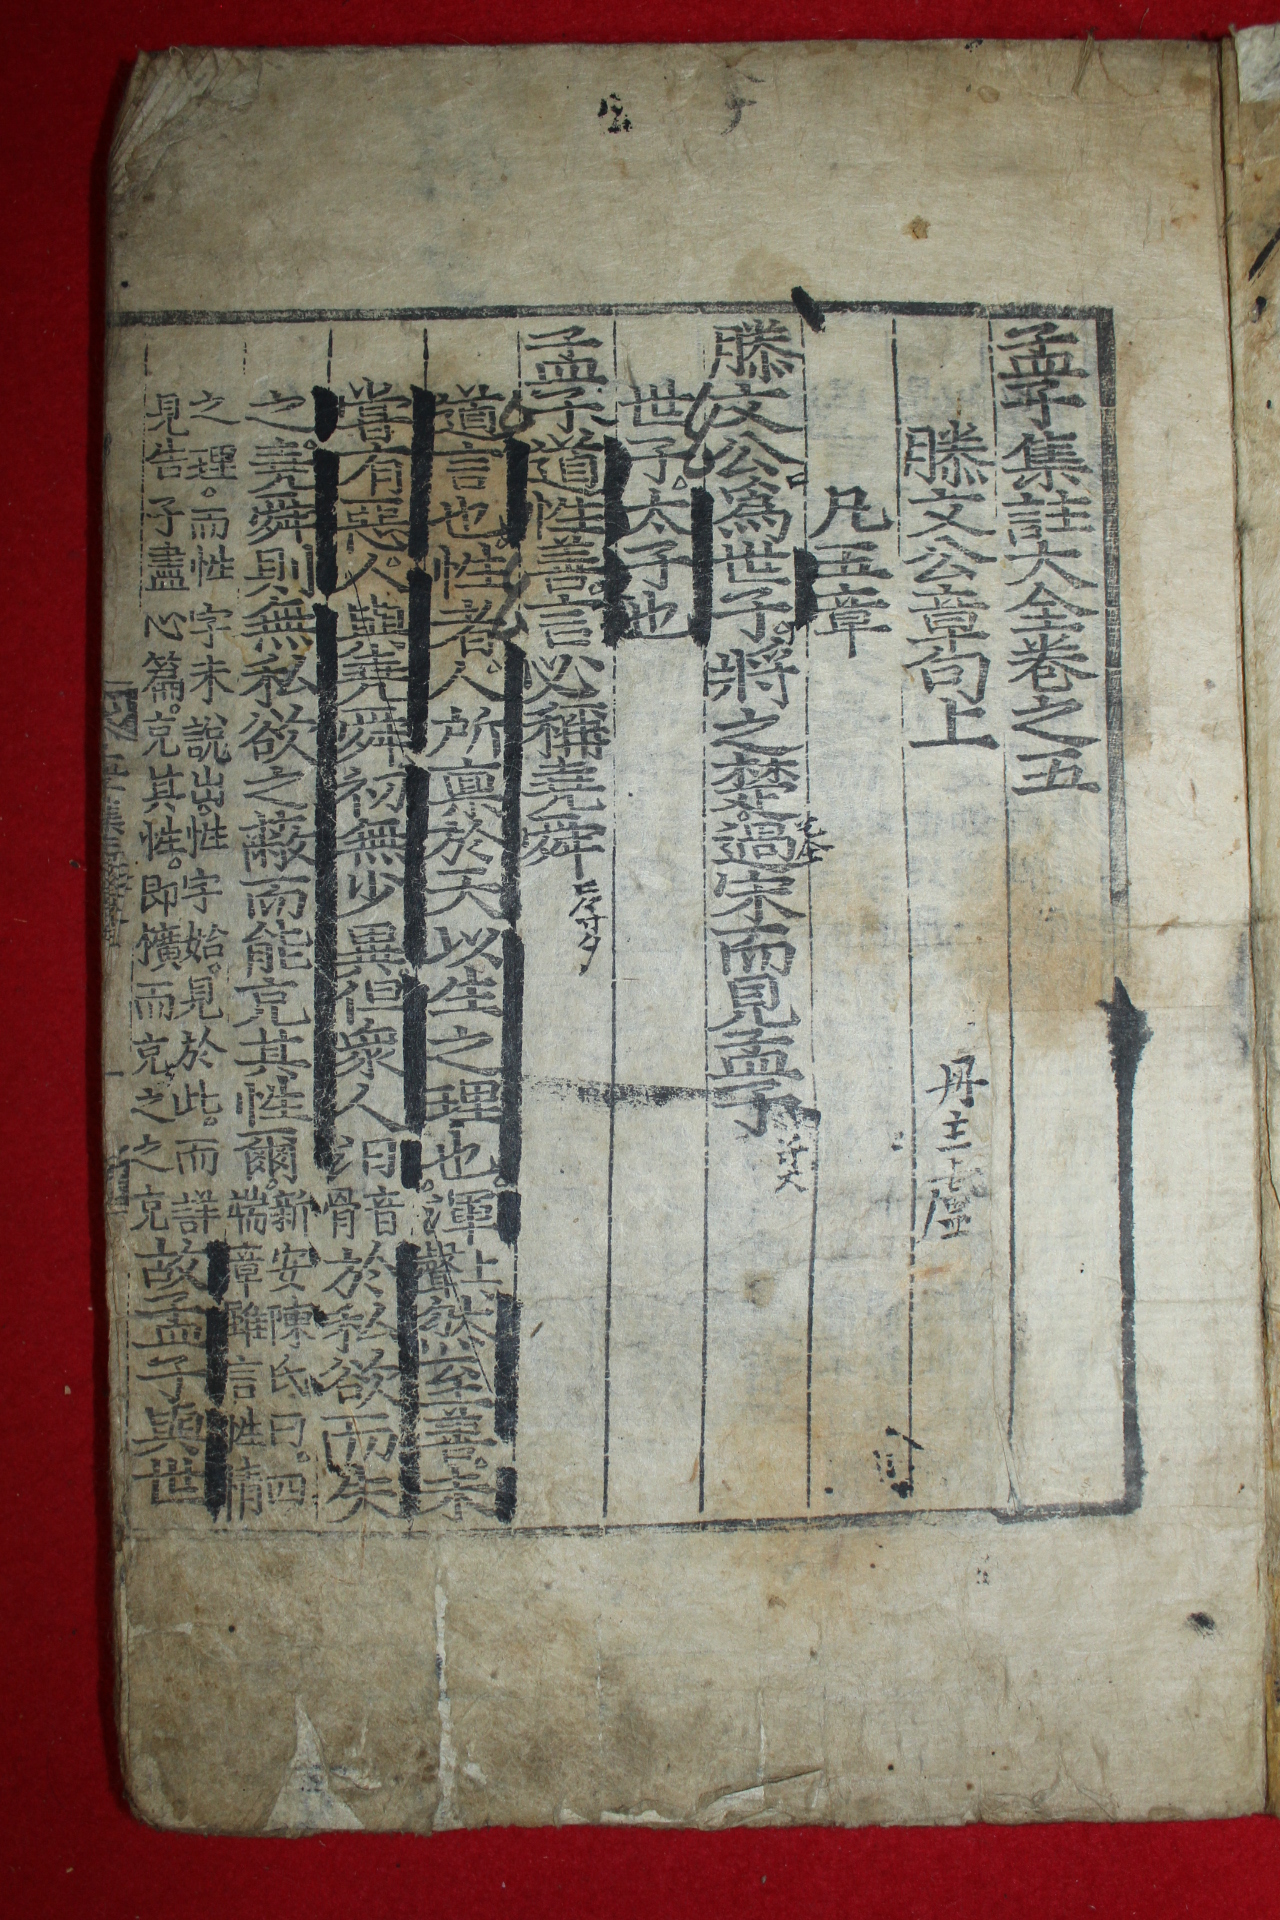 孟子集註大全卷之五
滕文公章句上
凡五章
滕文公爲世子。將之楚。過宋而見孟子
世子。太子也
孟子道性善。言必稱堯舜
道。言也。性者。人所稟於天以生之理也。渾上聲然至善。未
嘗有惡。人與堯舜初無少異。但衆人汨音骨於私欲而失
之。堯舜則無私欲之蔽而能充其性爾。新安陳氏曰。四端章雖言性情
之理。而性字未說出。性字始見於此。而詳見告子盡心篇。充其性。即擴而充之之充故孟子與世